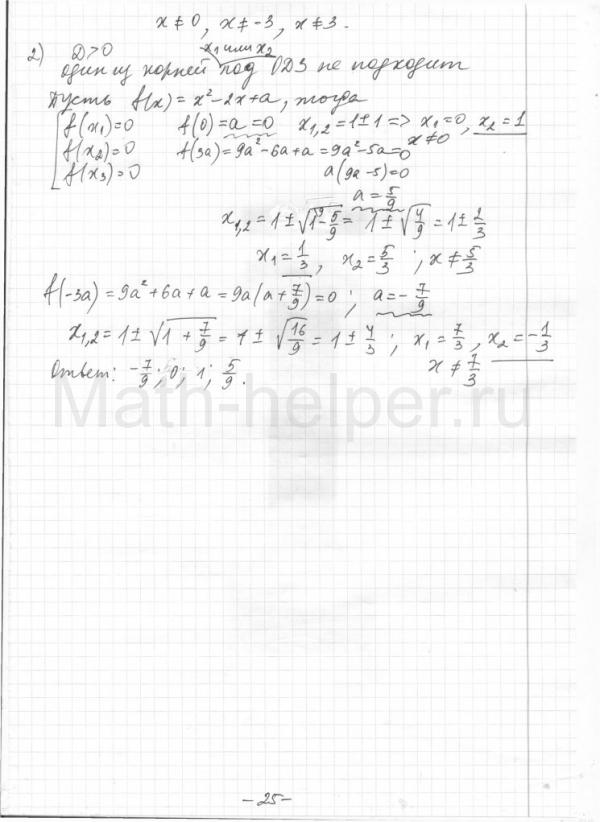 x ≠ 0, x ≠ -3, x ≠ 3.
2) D > 0 x₁ или x₂
один из корней под ОДЗ не подходит
Пусть f(x) = x² - 2x + a, тогда
[ f(x₁) = 0 f(0) = a = 0 x₁,₂ = 1 ± 1 => x₁ = 0, x₂ = 1
f(x₂) = 0 f(3a) = 9a² - 6a + a = 9a² - 5a = 0 x ≠ 0
f(x₃) = 0 a(9a - 5) = 0
a = 5/9
x₁,₂ = 1 ± √(1 - 5/9) = 1 ± √(4/9) = 1 ± 2/3
x₁ = 1/3, x₂ = 5/3 ; x ≠ 5/3
f(-3a) = 9a² + 6a + a = 9a(a + 7/9) = 0 ; a = -7/9
x₁,₂ = 1 ± √(1 + 7/9) = 1 ± √(16/9) = 1 ± 4/3 ; x₁ = 7/3, x₂ = -1/3
x ≠ 7/3
Ответ: -7/9; 0; 1; 5/9.
Math-helper.ru
- 25 -